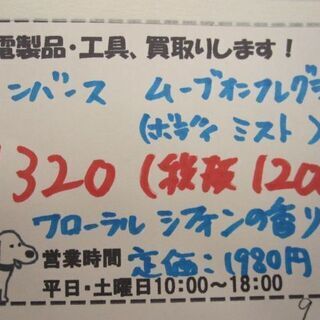 電製品・工具、買取りします!
ンバンス ムーブオンフレグラ
(ボディ ミスト)
1320 (税抜 1200
フローラル シフォンの香り
営業時間 定価:1980円
平日・土曜日10:00〜18:00
9